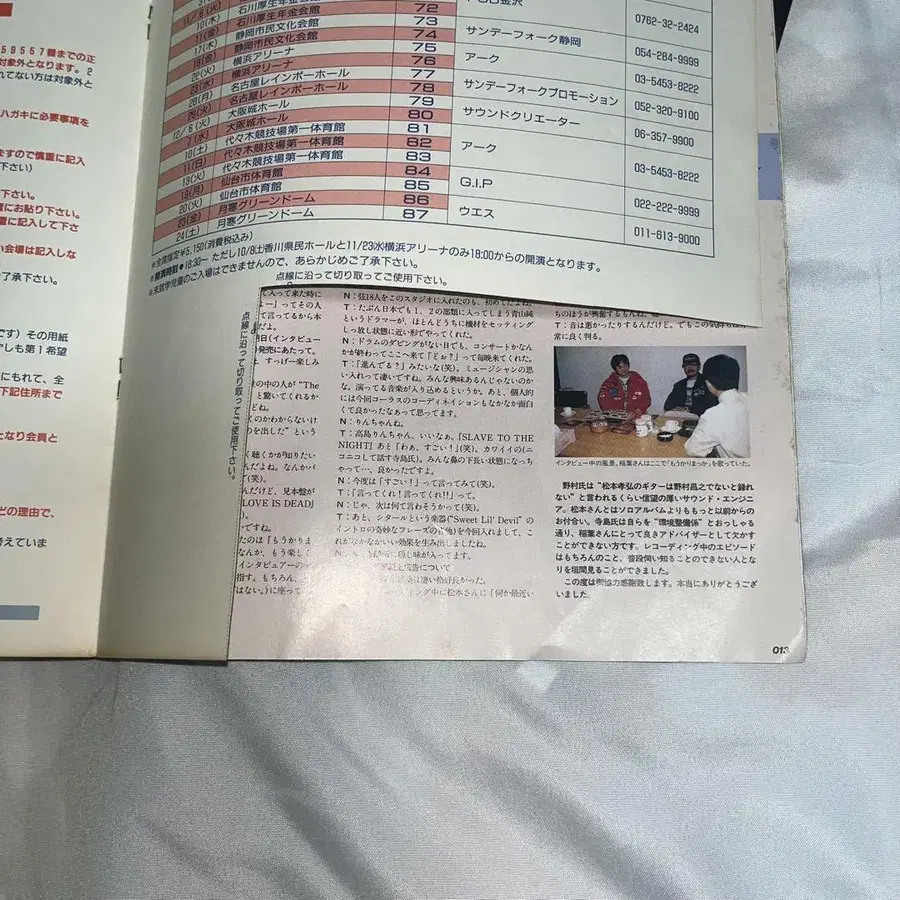 59557番までの正
対象外となります。2
れてない方は対象外と
ハガキに必要事項を
ますので慎重に記入
下さい)
下さい。
置にお貼り下さい。
置に記入して下さ
い会場は記入しな
了承下さい。
です)その用紙
しも第1希望
にもれて、全
下記住所まで
となり会員と
どの理由で、
考えていま
11/6(火) 石川厚生年金会館 72
0762-32-2424
10(木) 静岡市民文化会館 73
11(金) 静岡市民文化会館 74 サンデーフォーク静岡 054-284-9999
17(木) 横浜アリーナ 75
横浜アリーナ 76 アーク 03-5453-8222
22(火) 名古屋レインボーホール 77
23(水) 名古屋レインボーホール 78 サンデーフォークプロモーション 052-320-9100
28(月) 大阪城ホール 79
大阪城ホール 80 サウンドクリエーター 06-357-9900
12/6(火) 代々木競技場第一体育館 81
7(水) 代々木競技場第一体育館 82 アーク 03-5453-8222
10(土) 代々木競技場第一体育館 83
11(日) 仙台市体育館 84
13(火) 仙台市体育館 85 G.I.P 022-222-9999
19(月) 月寒グリーンドーム 86
20(火) 月寒グリーンドーム 87 ウエス 011-613-9000
23(金)
24(土)
*全席指定¥5,150(消費税込み)
*開演時刻●18:30~ ただし10/8(土)香川県民ホールと11/23(水)横浜アリーナのみ18:00からの開演となります。
*未就学児童のご入場はできませんので、あらかじめご了承下さい。
点線に沿って切り取ってご使用下さい。
点線に沿って切り取ってご使用下さい。
て入って来た時に
よー」ってその人
て言ってるから本
だよ。
明日(インタビュー
の発売にあたって。
は、すっげー楽しみ
の中の人が"The
と驚いてくれるか
どね。
くのかわからないけ
のを出した"という
く聴くかが知りたい
んだよね。なんかバ
て(笑)。
んだけど、見本盤が
LOVE IS DEAD』
(笑)。
ですね。
たのは『もうかりま
なんか、もう楽しく
インタビュアーの
指す。もちろん、
はない。)に座って
N:弦18人をこのスタジオに入れたのも、初めてだよね。
T:たぶん日本でも1、2の部類に入ってしまう青山純
というドラマーが、ほとんどうちに機材をセッティング
しっ放し状態に近い形でやってくれた。
N:ドラムのダビングがない日でも、コンサートかなん
かが終わってここへ来て「どぉ?」って毎晩来てくれた。
T:「進んでる?」みたいな(笑)。ミュージシャンの思
い入れって凄いですね。みんな興味あるんじゃないのか
な、演ってる音楽が入り込めるというか。あと、個人的
には今回コーラスのコーディネイションもなかなか面白
くて良かったなあって思ってます。
N:りんちゃんね。
T:高島りんちゃん、いいなぁ。『SLAVE TO THE
NIGHT』あと「わぁ、すごい!」(笑)。カワイイの(ニ
コニコして話す寺島氏)。みんな鼻の下長い状態になっち
ゃって…、良かったですよ。
N:今度は「すごい!」って言ってみて(笑)。
T:「言ってくれ!言ってくれ!!」って。
N:じゃ、次は何て言わそうか(笑)。
T:あと、シタールという楽器("Sweet Lil' Devil"の
イントロの奇妙なフレーズの音色)を今回入れまして、こ
れがなかなかいい効果を生み出しましたね。
味が入ってます。
広告について
は凄い格好良かった。
ィング中に松本さんに「何か最近い
ちのほうが興奮するもんね。
T:音は悪かったりするんだけど、でもこの気持ちは
常に良く判る。
インタビュー中の風景。稲葉さんはここで「もうかりまっか」を歌っていた。
野村氏は"松本孝弘のギターは野村昌之でないと録れ
ない"と言われるくらい信望の厚いサウンド・エンジニ
ア。松本さんとはソロアルバムよりももっと以前からの
お付合い。寺島氏は自らを"環境整備係"とおっしゃる
通り、稲葉さんにとって良きアドバイザーとして欠かす
ことができない方です。レコーディング中のエピソード
はもちろんのこと、普段伺い知ることのできない人とな
りを垣間見ることができました。
この度は御協力感謝致します。本当にありがとうござ
いました。
013